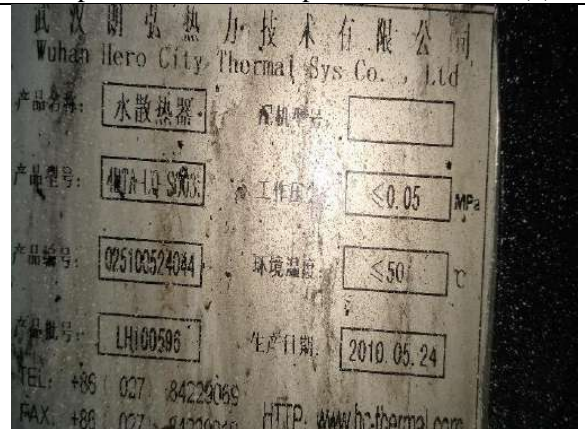 武汉朗弘热力技术有限公司
Wuhan Hero City Thermal Sys Co., Ltd
产品名称: 水散热器 配机型号:
产品型号: 工作压力: ≤0.05 MPa
产品编号: 025100524044 环境温度: ≤50 ℃
产品批号: LH100596 生产日期: 2010.05.24
TEL: +86 (027) 84229069
FAX: +86 027 HTTP: www.hc-thermal.com